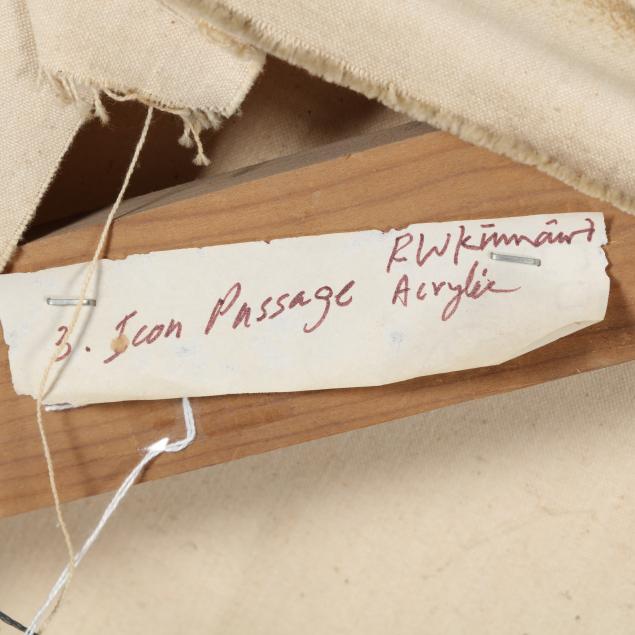 RWKinnaird
3. Icon Passage Acrylic